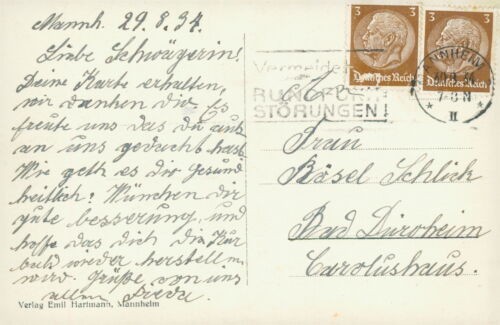 Mannh. 29.8.34.
Liebe Schwägerin!
Deine Karte erhalten,
wir danken dir. Es
freute uns das du auch
an uns gedacht hast.
Wie geth es dir gesund
heitlich? Wünchen dir
gute besserung, und
hoffe das dich die Kur
bald wieder herstellen
wird. Grüße von uns
allen Frieda
Verlag Emil Hartmann, Mannheim
3 3
Deutsches Reich Deutsches Reich
Vermeidet
RUNDFUNK
STÖRUNGEN!
MANNHEIM
II
Frau
Rösel Schlick
Bad Dürrheim
Carolushaus.